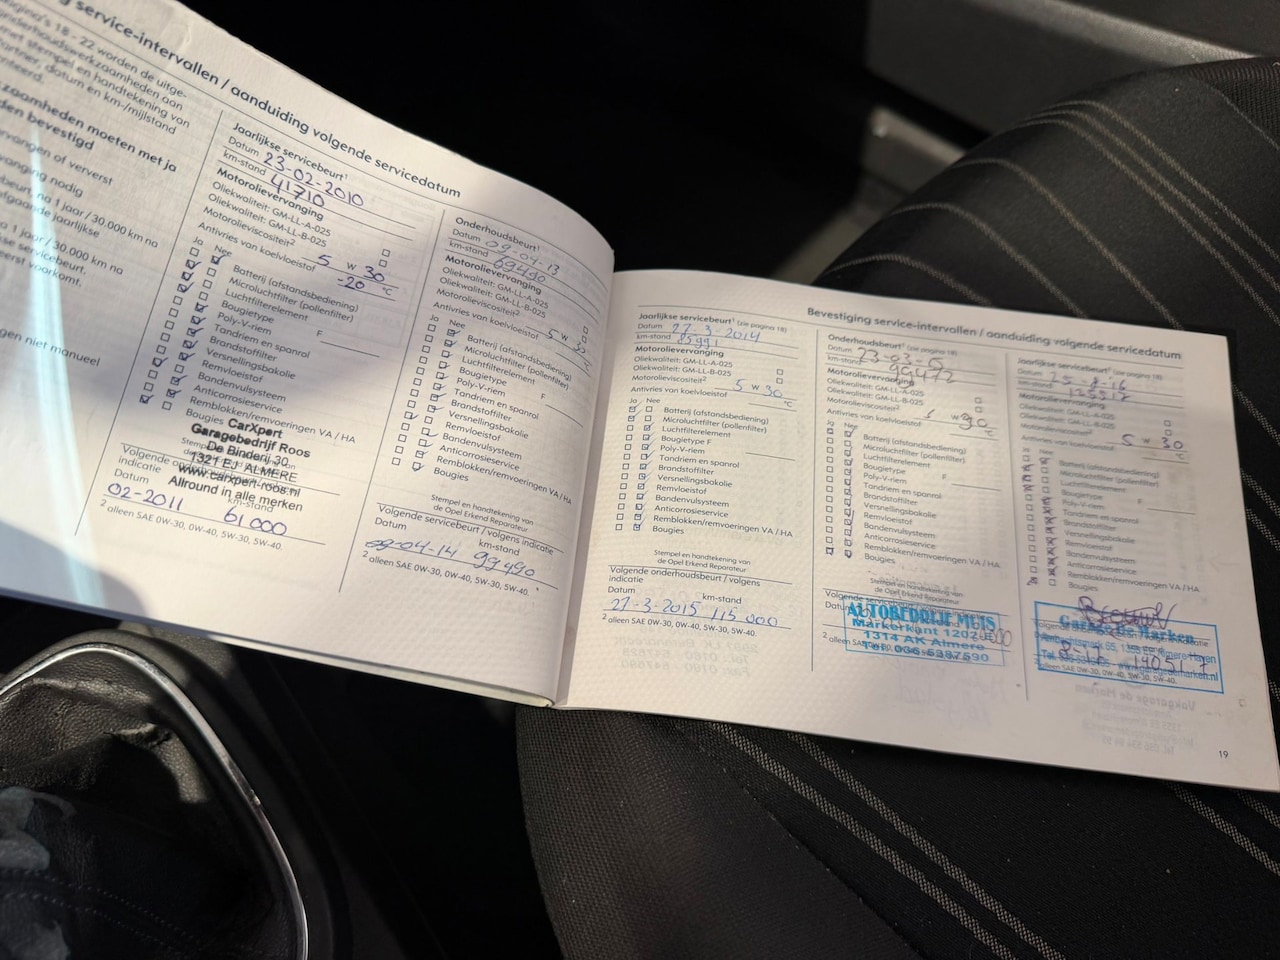 g service-intervallen / aanduiding volgende servicedatum
pagina's 18 - 22 worden de uitge-
onderhoudswerkzaamheden aan
met stempel en handtekening van
Partner, datum en km-/mijlstand
zaamheden moeten met ja
den bevestigd
vervangen of ververst
vanging nodig
beurt, na 1 jaar / 30.000 km na
jaarlijkse
a 1 jaar / 30.000 km na
se servicebeurt.
eerst voorkomt.
gen niet manueel
Jaarlijkse servicebeurt¹
Datum 23-02-2010
km-stand 41710
Motorolievervanging
Oliekwaliteit: GM-LL-A-025
Oliekwaliteit: GM-LL-B-025
Motorolieviscositeit² 5 W 30
Antivries van koelvloeistof -20 °C
Ja Nee
Batterij (afstandsbediening)
Microluchtfilter (pollenfilter)
Luchtfilterelement
Bougietype F
Poly-V-riem
Tandriem en spanrol
Brandstoffilter
Versnellingsbakolie
Remvloeistof
Bandenvulsysteem
Anticorrosieservice
Remblokken/remvoeringen VA / HA
Bougies
CarXpert
Garagebedrijf Roos
De Binderij 30
1321 EJ ALMERE
www.carxpert-roos.nl
Allround in alle merken
Volgende
indicatie
Datum km-stand
02-2011 61.000
² alleen SAE 0W-30, 0W-40, 5W-30, 5W-40.
Onderhoudsbeurt¹
Datum 09-04-13
km-stand 69490
Motorolievervanging
Oliekwaliteit: GM-LL-A-025
Oliekwaliteit: GM-LL-B-025
Motorolieviscositeit² 5 W 30
Antivries van koelvloeistof °C
Ja Nee
Batterij (afstandsbediening)
Microluchtfilter (pollenfilter)
Luchtfilterelement
Bougietype F
Poly-V-riem
Tandriem en spanrol
Brandstoffilter
Versnellingsbakolie
Remvloeistof
Bandenvulsysteem
Anticorrosieservice
Remblokken/remvoeringen VA / HA
Bougies
Stempel en handtekening van
de Opel Erkend Reparateur
Volgende servicebeurt / volgens indicatie
Datum km-stand
09-04-14 99490
² alleen SAE 0W-30, 0W-40, 5W-30, 5W-40.
Bevestiging service-intervallen / aanduiding volgende servicedatum
Jaarlijkse servicebeurt¹ (zie pagina 18)
Datum 27-3-2014
km-stand 85991
Motorolievervanging
Oliekwaliteit: GM-LL-A-025
Oliekwaliteit: GM-LL-B-025
Motorolieviscositeit² 5 W 30
Antivries van koelvloeistof °C
Ja Nee
Batterij (afstandsbediening)
Microluchtfilter (pollenfilter)
Luchtfilterelement
Bougietype F
Poly-V-riem
Tandriem en spanrol
Brandstoffilter
Versnellingsbakolie
Remvloeistof
Bandenvulsysteem
Anticorrosieservice
Remblokken/remvoeringen VA / HA
Bougies
Stempel en handtekening van
de Opel Erkend Reparateur
Volgende onderhoudsbeurt / volgens
indicatie
Datum km-stand
27-3-2015 115 000
² alleen SAE 0W-30, 0W-40, 5W-30, 5W-40.
Onderhoudsbeurt¹ (zie pagina 18)
Datum 23-03-
km-stand 99472
Motorolievervanging
Oliekwaliteit: GM-LL-A-025
Oliekwaliteit: GM-LL-B-025
Motorolieviscositeit² W 30
Antivries van koelvloeistof °C
Ja Nee
Batterij (afstandsbediening)
Microluchtfilter (pollenfilter)
Luchtfilterelement
Bougietype F
Poly-V-riem
Tandriem en spanrol
Brandstoffilter
Versnellingsbakolie
Remvloeistof
Bandenvulsysteem
Anticorrosieservice
Remblokken/remvoeringen VA / HA
Bougies
Stempel en handtekening van
de Opel Erkend Reparateur
AUTOBEDRIJF MUIS
Markerkant 1202
1314 AK Almere
Tel. 036-5387590
² alleen SAE 0W-30, 0W-40, 5W-30, 5W-40.
Jaarlijkse servicebeurt¹ (zie pagina 18)
Datum 25-8-16
km-stand
Motorolievervanging
Oliekwaliteit: GM-LL-A-025
Oliekwaliteit: GM-LL-B-025
Motorolieviscositeit² 5 W 30
Antivries van koelvloeistof °C
Ja Nee
Batterij (afstandsbediening)
Microluchtfilter (pollenfilter)
Luchtfilterelement
Bougietype F
Poly-V-riem
Tandriem en spanrol
Brandstoffilter
Versnellingsbakolie
Remvloeistof
Bandenvulsysteem
Anticorrosieservice
Remblokken/remvoeringen VA / HA
Bougies
Garage de Marken
Almere-Haven
www.garagedemarken.nl
8-17
² alleen SAE 0W-30, 0W-40, 5W-30, 5W-40.
19